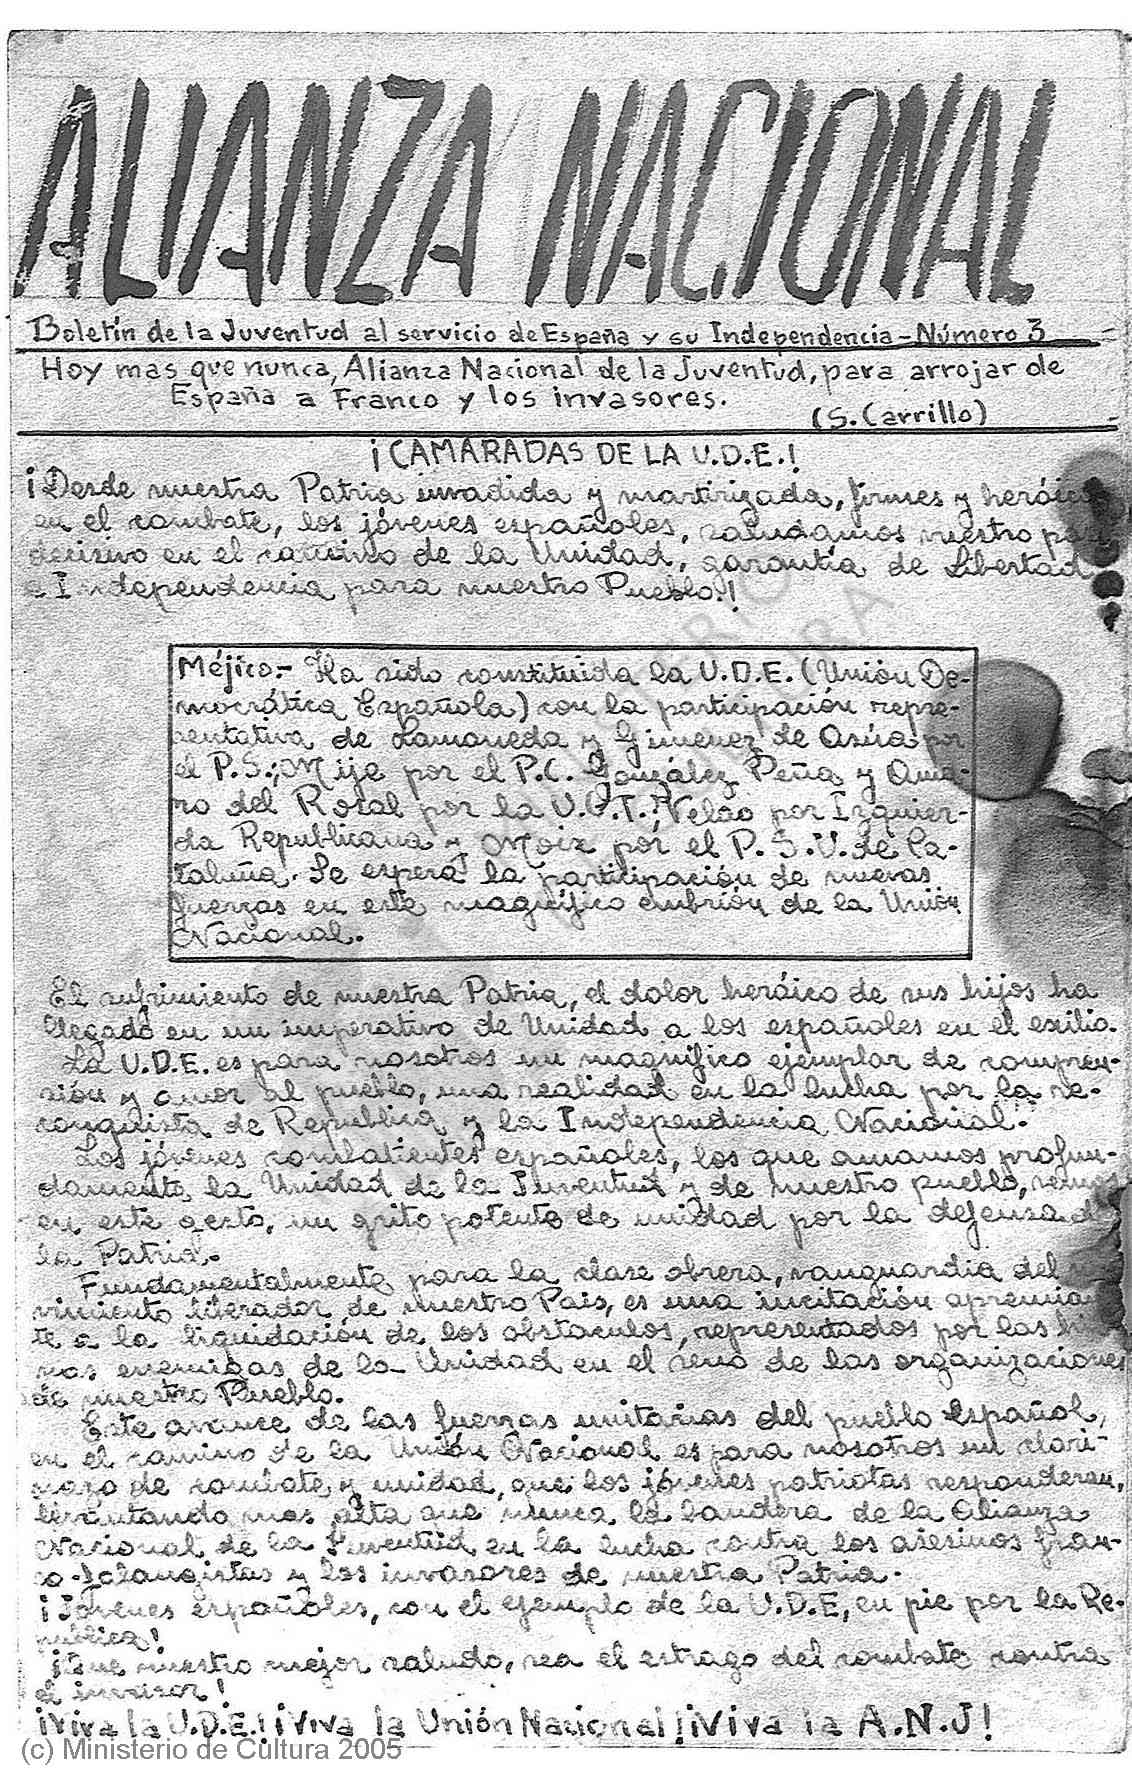 ALIANZA NACIONAL
Boletín de la Juventud al servicio de España y su Independencia - Número 3
Hoy mas que nunca, Alianza Nacional de la Juventud, para arrojar de
España a Franco y los invasores.
(S. Carrillo)
¡CAMARADAS DE LA U.D.E.!
¡Desde nuestra Patria invadida y martirizada, firmes y herói
en el combate, los jóvenes españoles, saludamos vuestro
decisivo en el camino de la Unidad, garantía de Libertad
e Independencia para nuestro Pueblo.!
Méjico.- Ha sido constituida la U.D.E. (Unión De-
mocrática Española) con la participación repre-
sentativa de Lamoneda y Gimenez de Asúa por
el P.S.; Mije por el P.C. González Peña y Ama-
ro del Rosal por la U.G.T.! Velao por Izquier-
da Republicana y Moix por el P.S.U. de Ca-
taluña. Se espera la participación de nuevas
fuerzas en este magnifico embrión de la Unión
Nacional.
El sufrimiento de nuestra Patria, el dolor heróico de sus hijos ha
llegado en un imperativo de Unidad a los españoles en el exilio.
La U.D.E. es para nosotros un magnifico ejemplar de compren-
sión y amor al pueblo, una realidad en la lucha por la re-
conquista de Republica y la Independencia Nacional.
Los jóvenes combatientes españoles, los que amamos profun-
damente la Unidad de la Juventud y de nuestro pueblo, vemos
en este gesto, un grito potente de unidad por la defensa d
la Patria.
Fundamentalmente para la clase obrera, vanguardia del
vimiento liberador de nuestro Pais, es una incitación apremian
te a la liquidación de los obstaculos, representados por las
enemigas de la Unidad en el seno de las organizaciones
de nuestro Pueblo.
Este avance de las fuerzas unitarias del pueblo español,
en el camino de la Unión Nacional es para nosotros un clari-
nazo de combate y unidad, que los jóvenes patriotas responderan,
levantando mas alta que nunca la bandera de la Alianza
Nacional de la Juventud en la lucha contra los asesinos fran-
co-falangistas y los invasores de nuestra Patria.
¡Jóvenes españoles, con el ejemplo de la U.D.E, en pie por la Re-
pública!
¡Que nuestro mejor saludo, sea el estrago del combate contra
el invasor!
¡Viva la U.D.E.! ¡Viva la Unión Nacional! ¡Viva la A.N.J!
(c) Ministerio de Cultura 2005